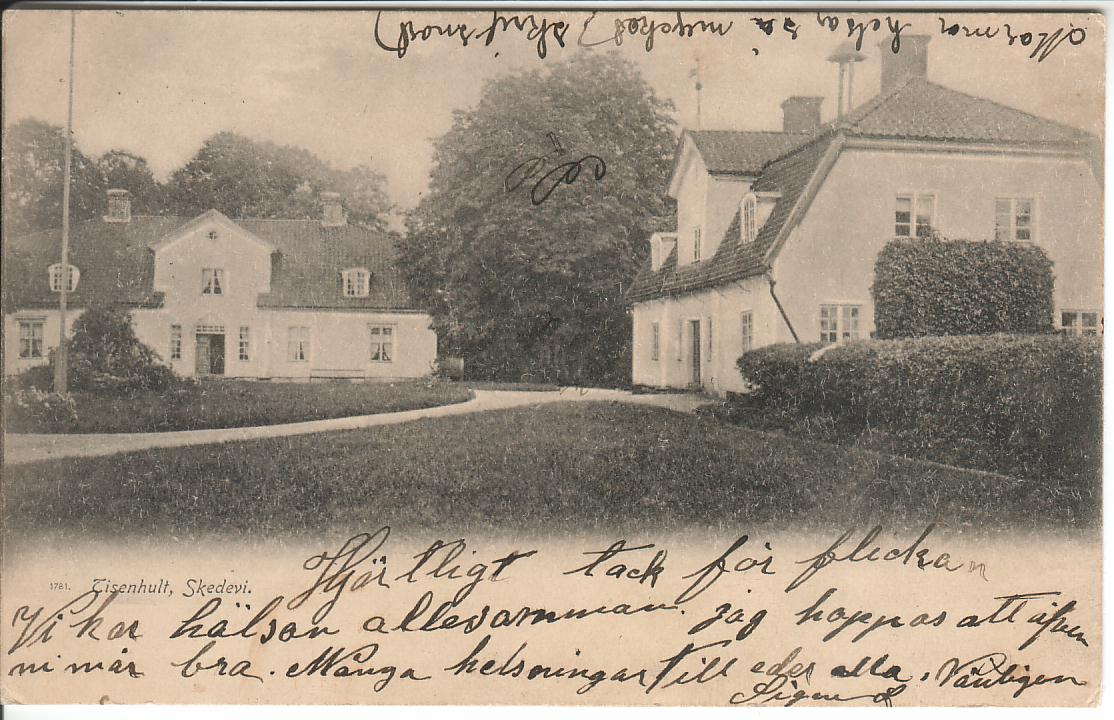 Mormor helsar så mycket, skrif snart)
1781. Tisenhult, Skedevi.
Hjärtligt tack för flickan
Vi har hälsan allesamman. jag hoppas att äfven
ni mår bra. Många helsningar till eder alla. Vänligen
Signe